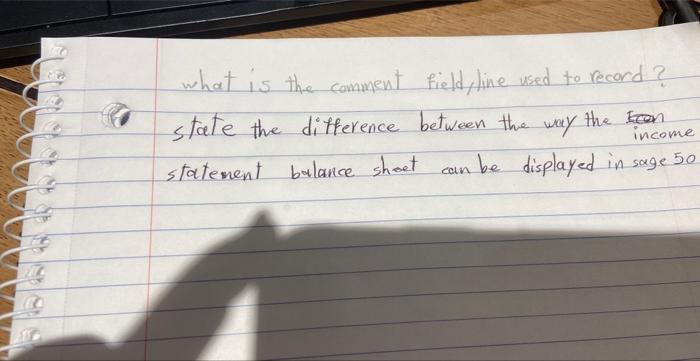 what is the comment field, line used to record?
state the difference between the way the income
statement balance sheet can be displayed in sage 50